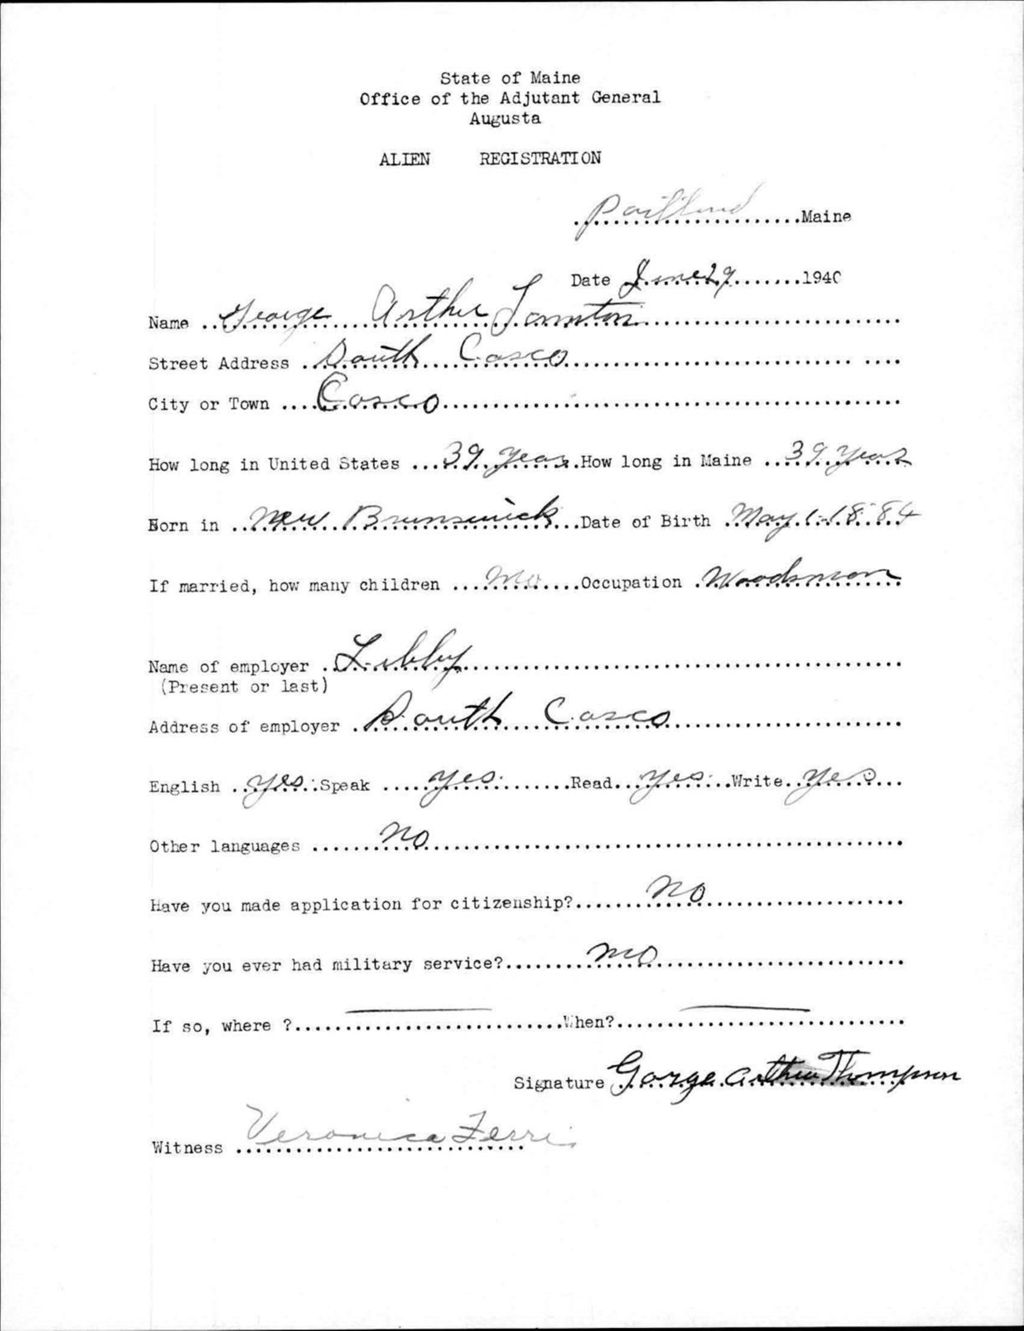 State of Maine
Office of the Adjutant General
Augusta
ALIEN REGISTRATION
Portland Maine
Date June 29 1940
Name George Arthur
Street Address South Casco
City or Town Casco
How long in United States 39 years How long in Maine 39 years
Born in New Brunswick Date of Birth May 1-1884
If married, how many children no Occupation Woodsman
Name of employer Libby
(Present or last)
Address of employer South Casco
English yes Speak yes Read yes Write yes
Other languages no
Have you made application for citizenship? no
Have you ever had military service? no
If so, where ? — When? —
Signature Gorge Arthur Thompson
Witness Veronica Ferri